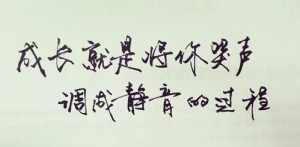 成长就是将你哭声
调成静音的过程